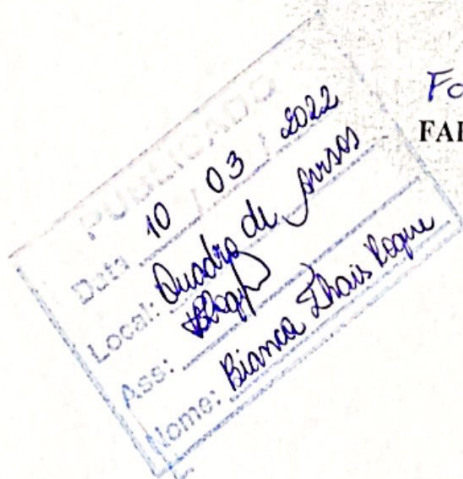 PUBLICADO
Data 10 / 03 / 2022
Local: Quadro de avisos
Ass:
Nome: Bianca Thais Roque
Fo
FAI